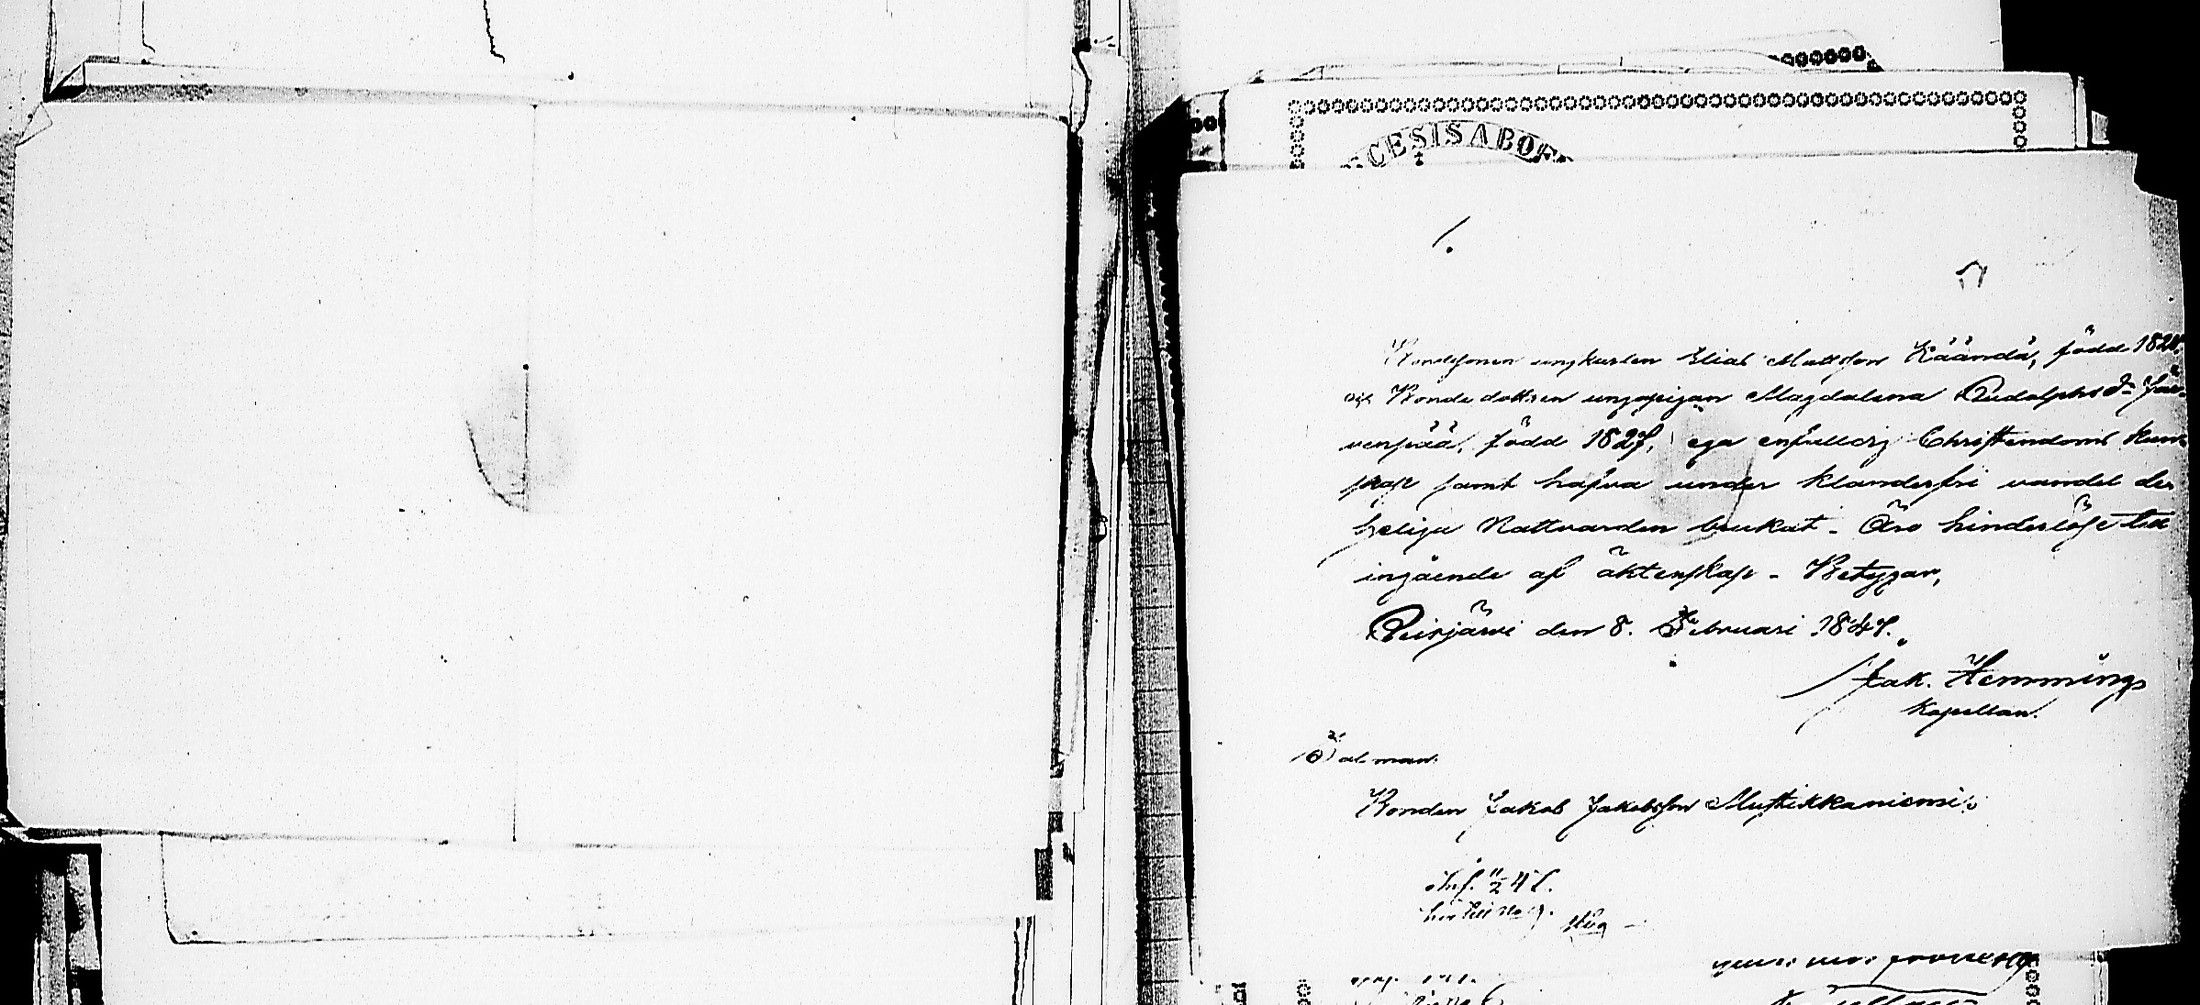 CESIS ABOE
1.
Bondesonen ungkarlen Elias Mattsson Käändä, född 182
och Bonde dottren ungpigan Magdalena Rudolphs dr Jär-
venpää, född 1827, ega enfalldig Christendoms kun-
skap samt hafva under klanderfri vandel den
heliga Nattvarden brukat - Äro hinderlöse till
ingående af äktenskap - Betygar,
Reisjärvi den 8. Februari 1847.
Jak. Hemming
Kapellan.
Talman
Bonden Jakob Jakobsson Mustikkaniemi